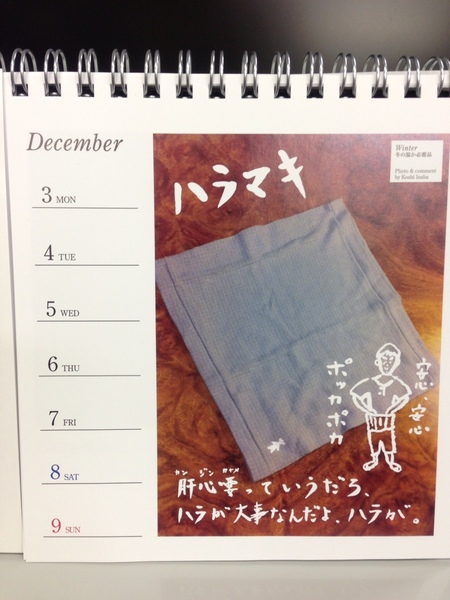 December
3 MON
4 TUE
5 WED
6 THU
7 FRI
8 SAT
9 SUN
ハラマキ
Winter
冬の温か必需品
Photo & comment
by Koshi Inaba
安心、安心
ポッカポカ
カン ジン カナメ
肝心要っていうだろ、
ハラが大事なんだよ、ハラが。